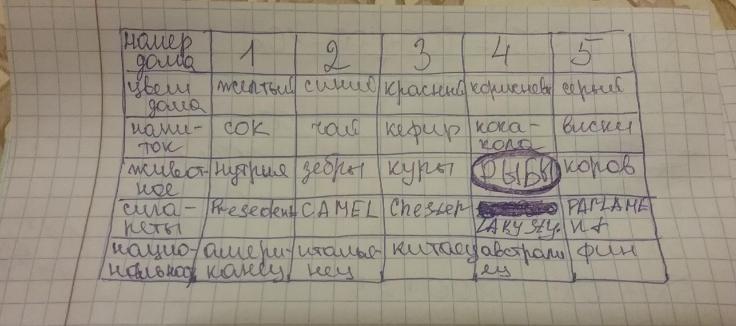 номер дома 1 2 3 4 5
цвет дома желтый синий красный коричневый серый
напи-
ток сок чай кефир кока-
кола виски
живот-
ное нутрия зебры куры РЫБЫ коров
сига-
реты President CAMEL Chester PARLAME
нт
нацио-
нальность амери-
канец италья-
нец китаец австрали
ец фин